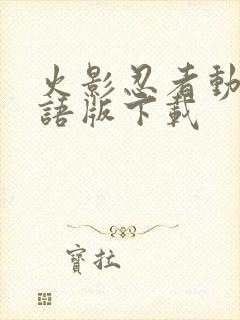 火影忍者動
語版下載
寶拉